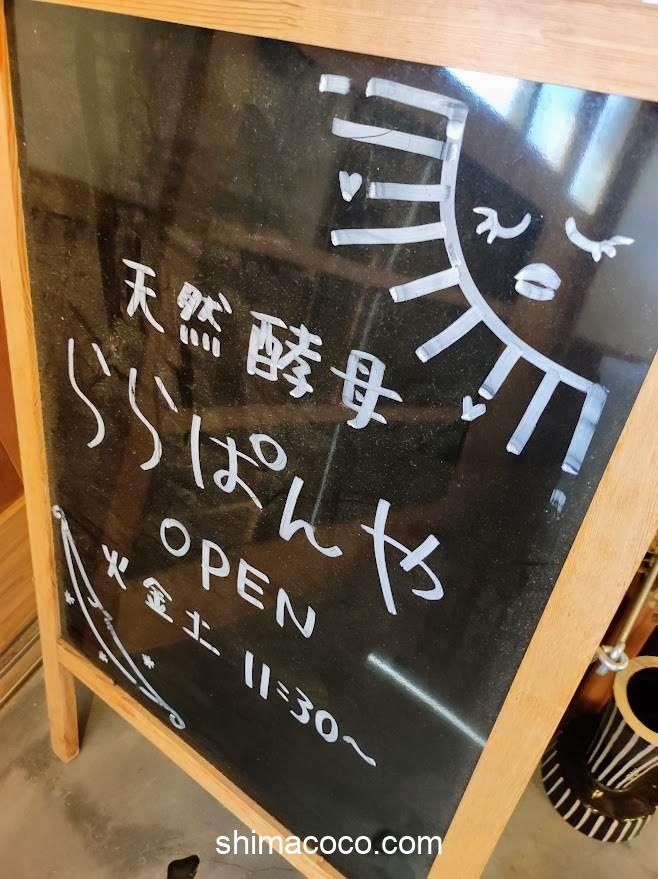 天然酵母
らぱんや
OPEN
火金土 11:30~
shimacoco.com